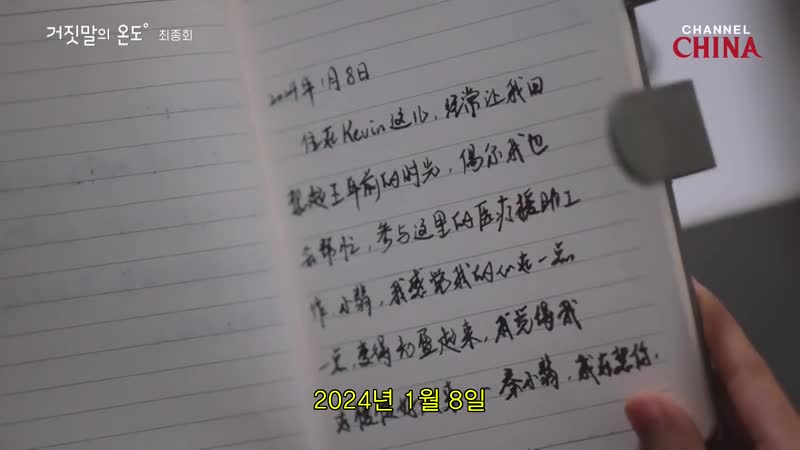 거짓말의 온도° 최종회
CHANNEL
CHINA
2024年1月8日
住在Kevin这儿，经常让我回
想起五年前的时光，偶尔我也
去帮忙，参与这里的医疗援助工
作，小，我感觉我的心在一点
一点，变得盈起来，我觉得我
好起来 秦小，我在想你.
2024년 1월 8일